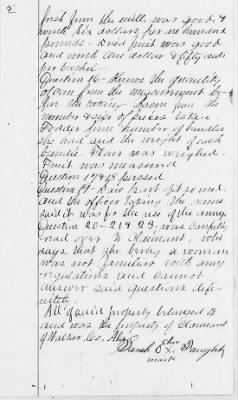 fresh from the mills was good &
worth Six dollars per one hundred
pounds - Dried fruit was good
and worth One dollar & fifty cents
per bushel -
Question 16 - Knows the quantity
of corn from the measurement by
for the rations given from the
number & size of pieces taken.
Fodder from number of bundles
she had and the weight of each
bundle. Flour was weighed.
Fruit was measured
Question 17 & 18 passed
Question 19. Said part of
and the officer taking the same
said it was for the use of the army.
Question 20-21 & 23. was carefully
read over to Claimant, who
says that she being a woman
was not familiar with army
regulations and cannot
answer said questions defi-
nitely.
All of said property belonged to
and was the property of Claimant
of Walker Co. Ala.
Sarah her X mark Daughty